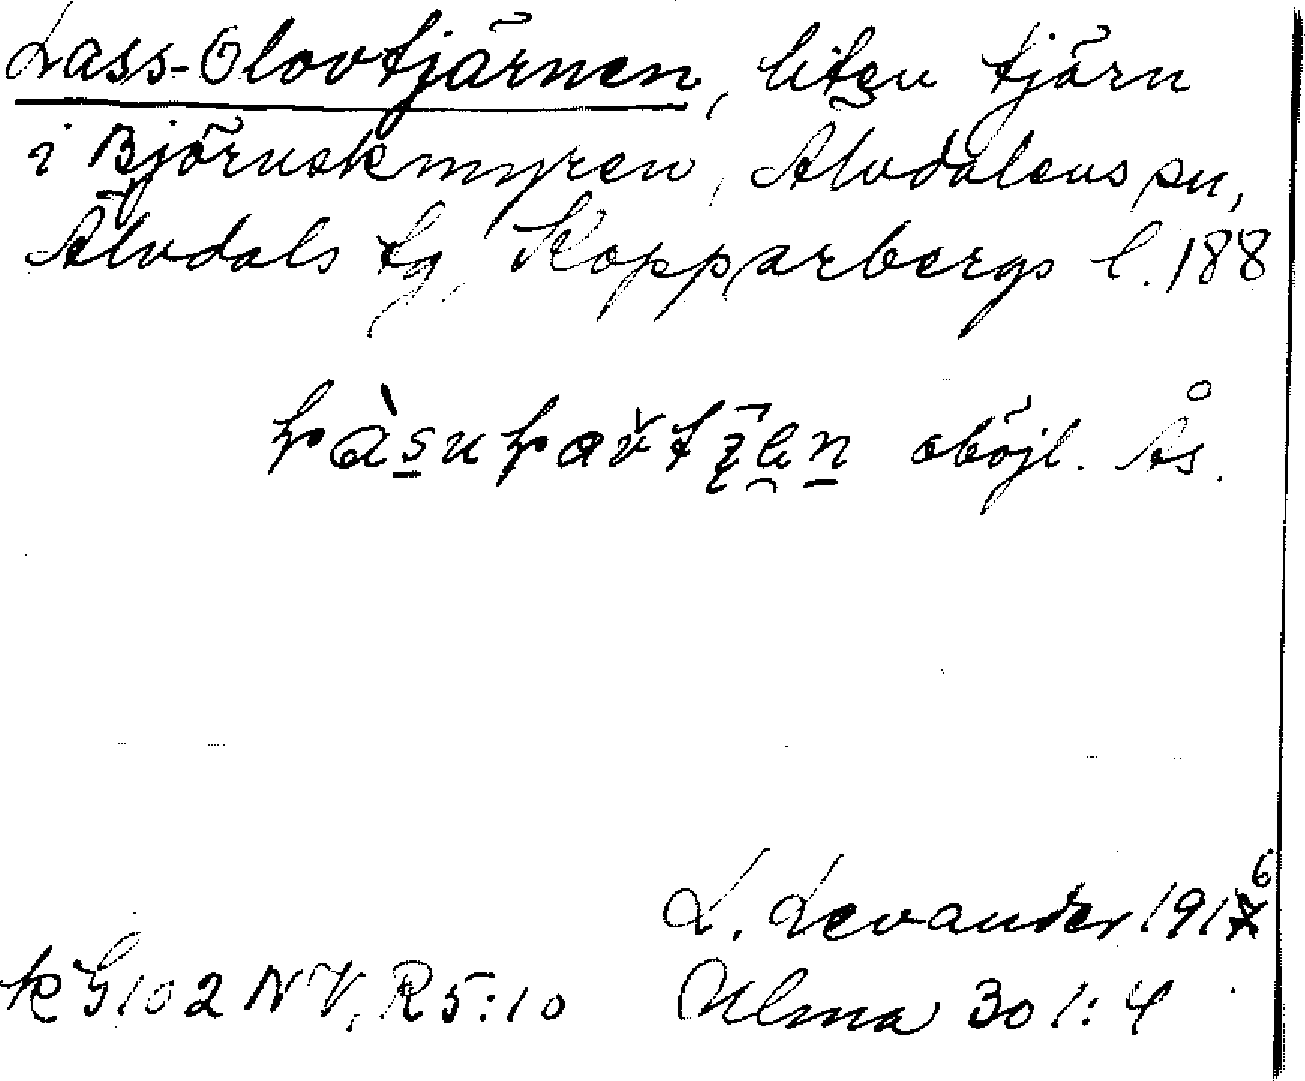 Lass-Olovtjärnen, liten tjärn
i Björnskmyren, Älvdalens sn,
Älvdals tg, Kopparbergs l. 188
oböjl. Ås.
L. Levander 1916
kG102 NV, R5:10 Ulma 301:4